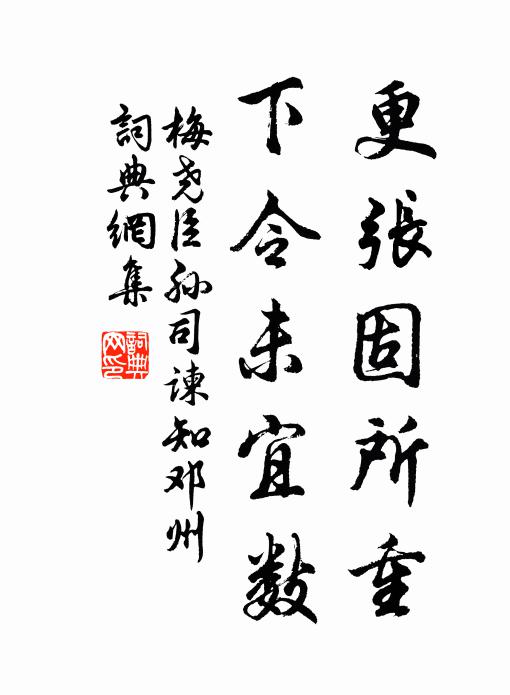 更張固所重
下令未宜数
梅尧臣孙司諫知邓州
詞典網集
詞典网印